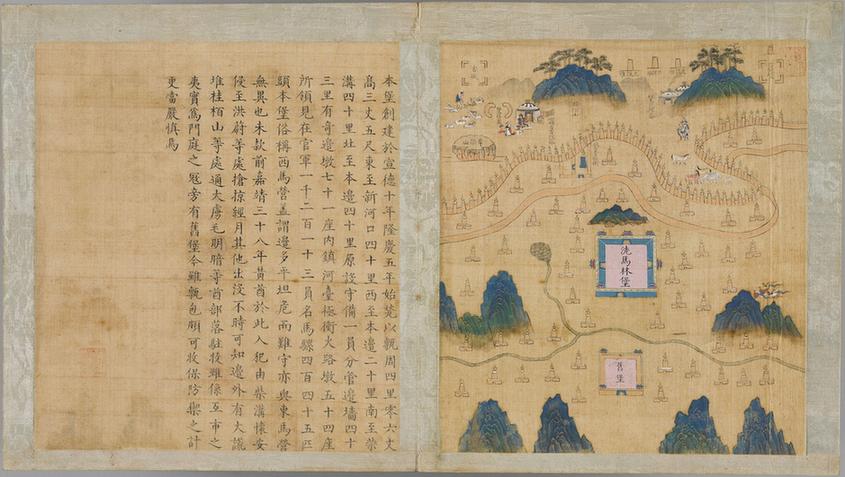 本堡創建於宣德十年隆慶五年始甃以甎周四里零六丈
高三丈五尺東至新河口四十里西至本邊二十里南至柴
溝四十里北至本邊四十里原設守備一員分管邊墻四十
三里有奇邊墩七十一座內鎮河臺極衝火路墩五十四座
所領見在官軍一千二百一十三員名馬騾四百四十五匹
頭本堡俗稱西馬營蓋謂邊多平坦危而難守亦與東馬營
無異也未款前嘉靖三十八年黃酋於此入犯由柴溝懷安
侵至洪蔚等處搶掠經月其他出沒不時可知邊外有大謊
堆桂柏山等處通大虜毛明暗等酋部落駐牧雖係互市之
夷實為門庭之寇旁有舊堡今雖甎包頗可收保防禦之計
更當嚴慎焉
洗馬林堡
舊堡